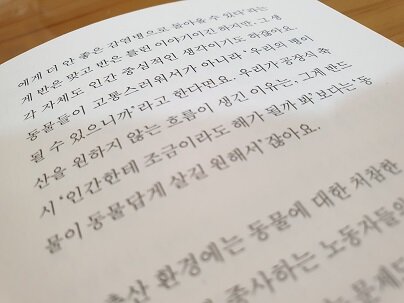 에게 더 안 좋은 감염병으로 돌아올 수 있다'라는
게 반은 맞고 반은 틀린 이야기이긴 하지만, 그 생
각 자체도 인간 중심적인 생각이기도 하잖아요.
동물들이 고통스러워서가 아니라 '우리의 병이
될 수 있으니까'라고 한다면요. 우리가 공장식 축
산을 원하지 않는 흐름이 생긴 이유는, 그게 반드
시 '인간한테 조금이라도 해가 될까 봐'보다는 '동
물이 동물답게 살길 원해서'잖아요.
축산 환경에는 동물에 대한 처참한
종사하는 노동자들의
문제도